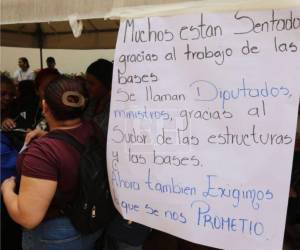 Muchos estan Sentado
gracias al trabajo de las
bases
Se llaman Diputados,
ministros, gracias al
Sudor de las estructuras
y las bases.
Ahora tambien Exigimos
que se nos PROMETIO.